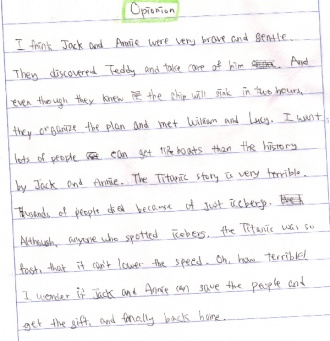 Opionion
I think Jack and Annie were very brave and gentle.
They discovered Teddy and take care of him. And
even though they knew the ship will sink in two hours,
they organize the plan and met William and Lucy. I want
lots of people can get life boats than the history
by Jack and Annie. The Titanic story is very terrible.
Thousands of people died because of just iceberg.
Although, anyone who spotted icebers, the Titanic was so
fast that it can't lower the speed. Oh, how terrible!
I wonder if Jack and Annie can save the people and
get the gift, and finally back home.